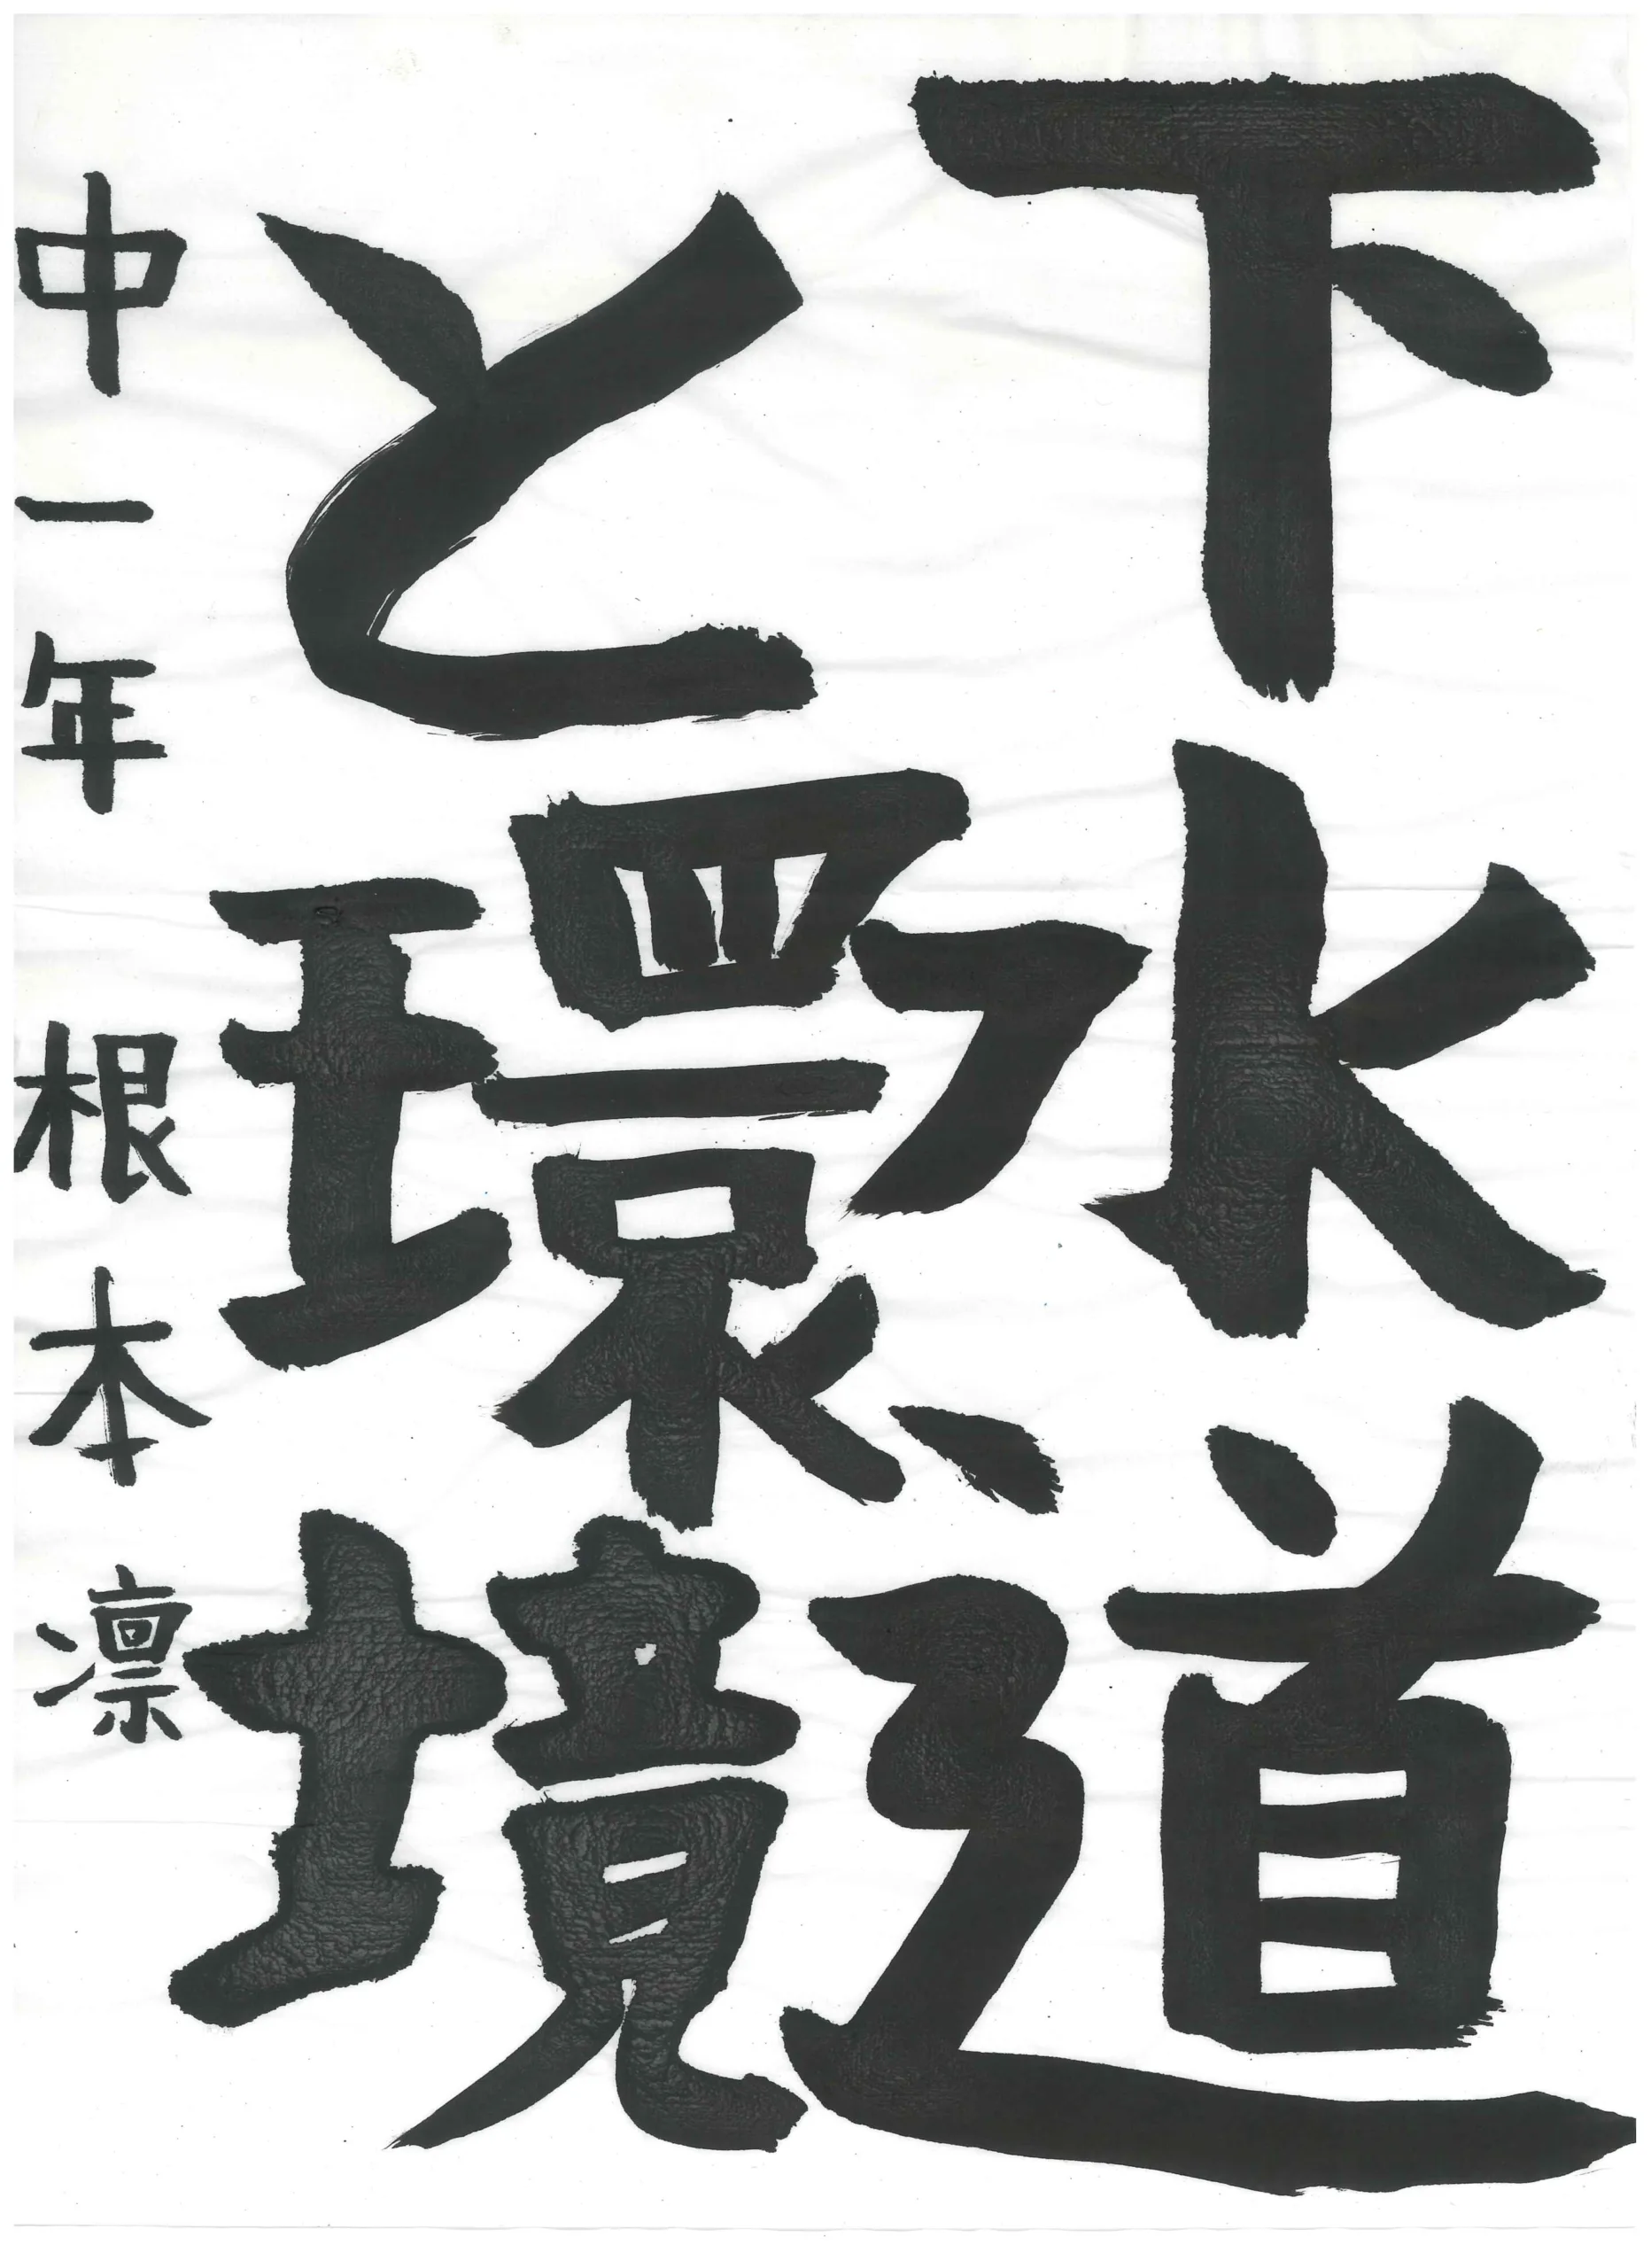 下水道
と環境
中一年 根本 凛